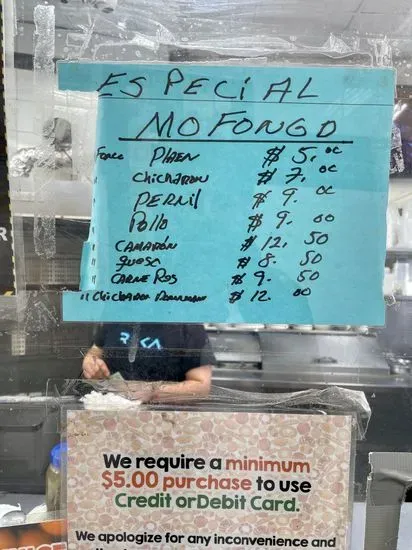 ESPECIAL
MOFONGO
PLAEN $ 5.00
" chicharron $ 7.00
" PERNIL $ 9.00
" Pollo $ 9.00
" CAMARÓN $ 12.50
" queso $ 8.50
" CARNE RES $ 9.50
" Chicharron $ 12.00
We require a minimum
$5.00 purchase to use
Credit or Debit Card.
We apologize for any inconvenience and